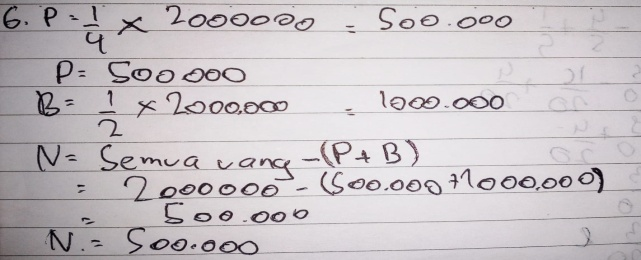 6. P = 1/4 × 2000000 = 500.000
P = 500000
B = 1/2 × 2000.000 = 1000.000
N = Semua uang - (P + B)
= 2000000 - (500.000 + 1000.000)
= 500.000
N. = 500.000